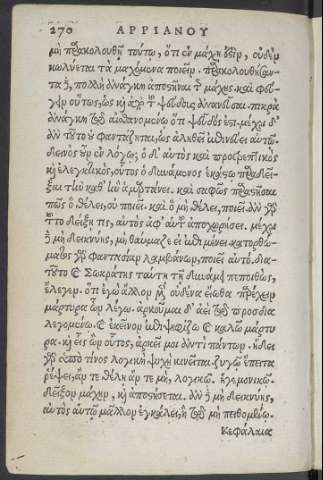 270 ΑΡΡΙΑΝΟΥ
μὴ παρακολουθῇ τούτῳ, ὅτι ἐν μάχῃ ἐστὶν, οὐδὲν
κωλύεται τὰ μαχόμενα ποιεῖν. παρακολουθήσαν-
τα δὲ, πολλὴ ἀνάγκη ἀποστῆναι τῆς μάχης καὶ φεύ-
γειν οὕτως, ὡς καὶ ἀπὸ τοῦ ψεύδους ἀνανεῦσαι πικρὰ
ἀνάγκη τῷ αἰσθανομένῳ ὅτι ψεῦδός ἐστι. μέχρι δὲ
ἂν τοῦτο οὐ φαντάζηται, ὡς ἀληθεῖ ἐπινεύει αὐτῷ.
δεινὸς οὖν ἐν λόγῳ, ὁ δ' αὐτὸς καὶ προτρεπτικὸς
καὶ ἐλεγκτικὸς, οὗτος ὁ δυνάμενος ἑκάστῳ παραδεῖ-
ξαι τὴν καθ' ἣν ἁμαρτάνει. καὶ σαφῶς παραστῆσαι
πῶς ὃ θέλει, οὐ ποιεῖ. καὶ ὃ μὴ θέλει, ποιεῖ. ἂν γὰρ
τοῦτο δείξῃ τις, αὐτὸς ἀφ' αὑτοῦ ἀποχωρήσει. μέχρι
δὲ μὴ δεικνύῃς, μὴ θαύμαζε εἰ ἐπιμένει κατορθώ-
ματος γὰρ φαντασίαν λαμβάνων, ποιεῖ αὐτό. διὰ
τοῦτο καὶ Σωκράτης ταύτῃ τῇ δυνάμει πεποιθὼς,
ἔλεγεν. ὅτι ἐγὼ ἄλλον μὲν οὐδένα εἴωθα παρέχειν
μάρτυρα ὧν λέγω. ἀρκοῦμαι δ' ἀεὶ τῷ προσδια
λεγομένῳ. καὶ ἐκεῖνον ἐπιψηφίζω καὶ καλῶ μάρτυ
ρα. καὶ εἷς ὢν οὗτος, ἀρκεῖ μοι ἀντὶ πάντων. ᾔδει
γὰρ ὑπὸ τίνος λογικὴ ψυχὴ κινεῖται. ζυγῷ ἔπειτα
ῥέψει, ἄν τε θέλῃ ἄν τε μή. λογικῷ ἡγεμονικῷ
δεῖξον μάχην, καὶ ἀποστήσεται. ἂν δὲ μὴ δεικνύῃς,
αὐτὸς αὑτῷ μᾶλλον ἐγκάλει, ἢ τῷ μὴ πειθομένῳ.
Κεφάλαια